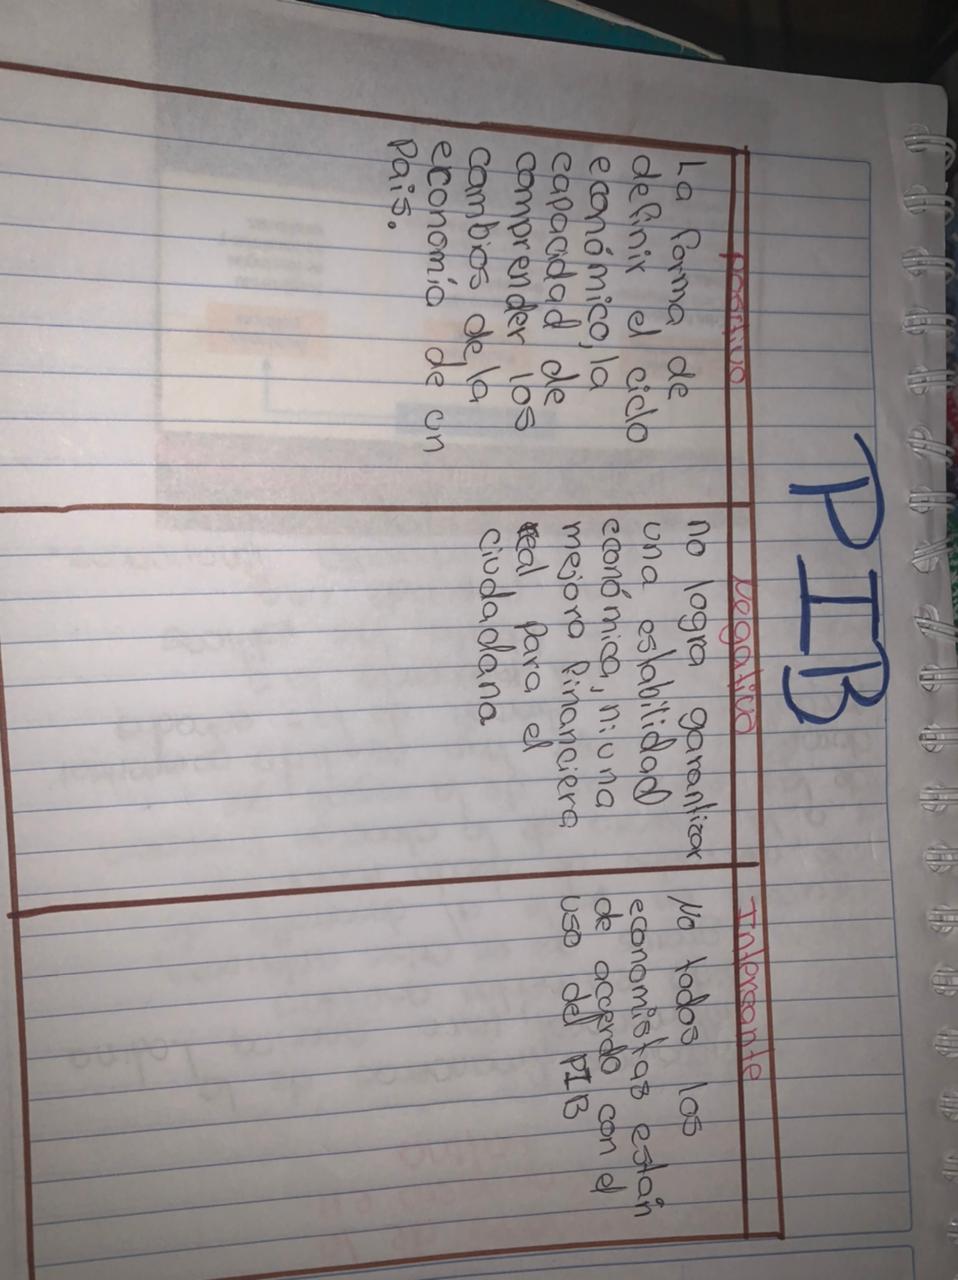 PIB
positivo
La forma de
definir el ciclo
económico, la
capacidad de
comprender los
cambios de la
economía de un
País.
Negativo
no logra garantizar
una estabilidad
económica, ni una
mejora financiera
real para el
ciudadana
Interesante
No todos los
economistas están
de acuerdo con el
uso del PIB